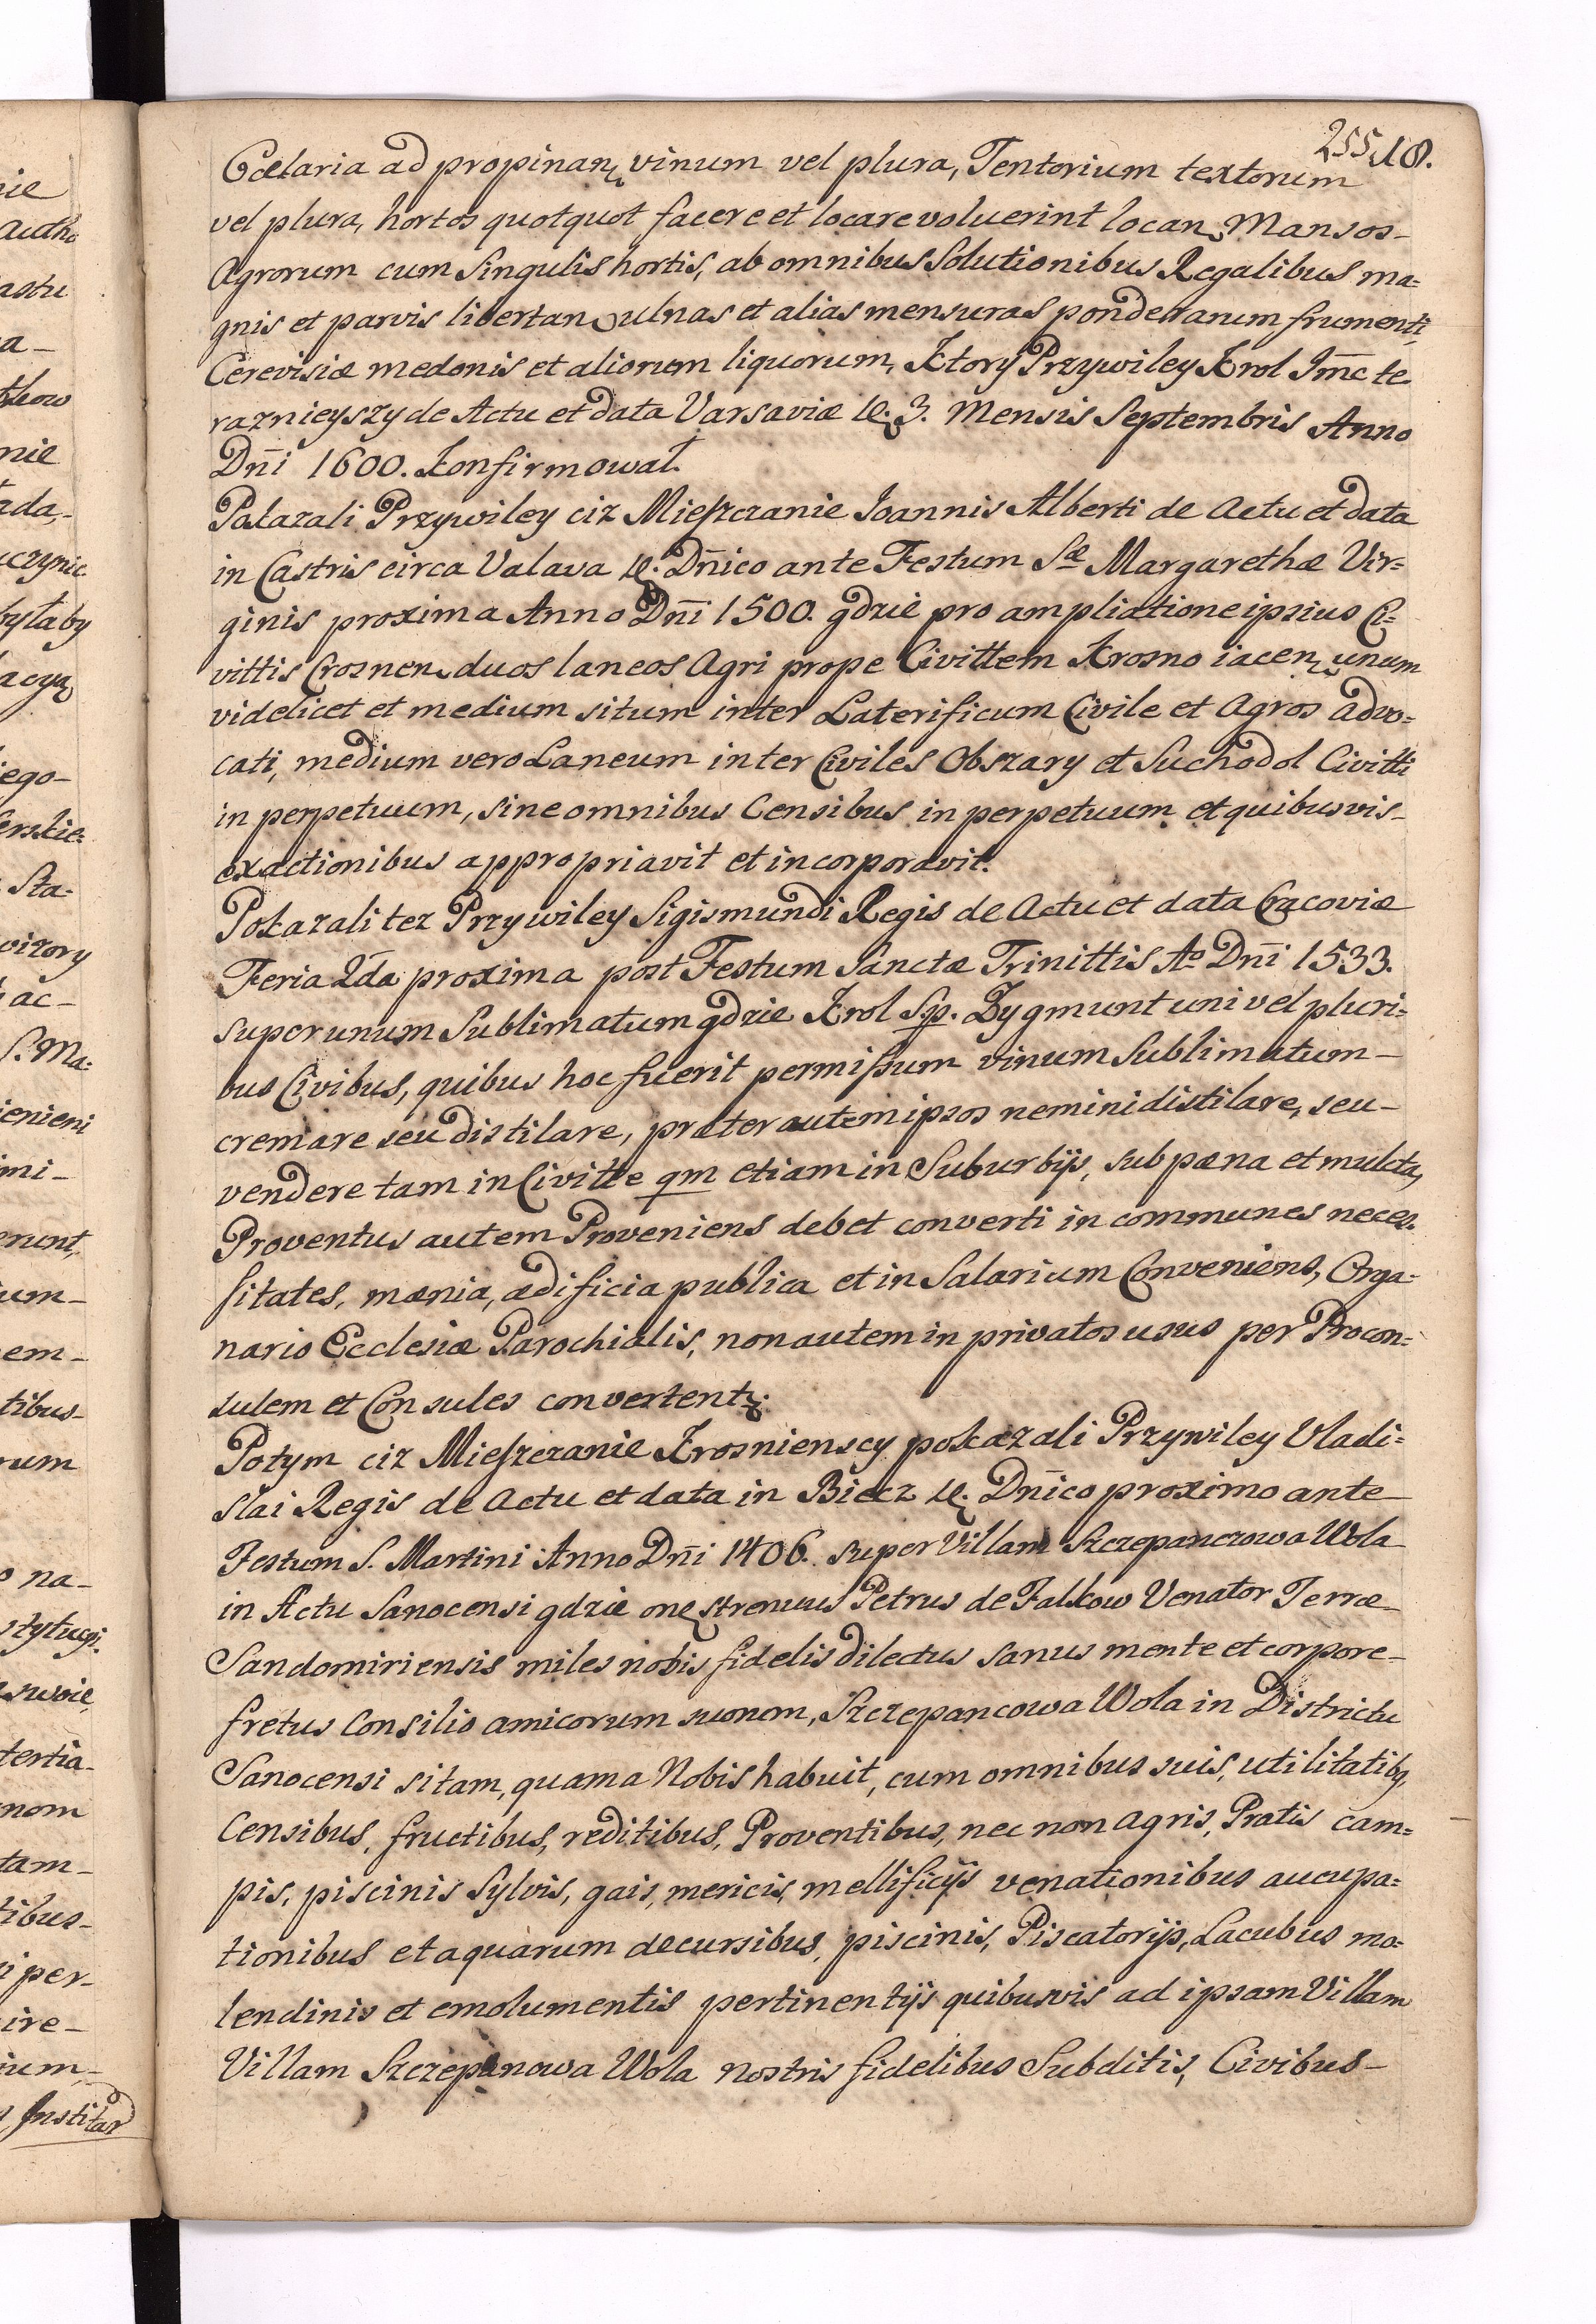 255 18.
Cælaria ad propinan vinum vel plura, Tentorium textorum
vel plura, hortos quotquot facere et locare voluerint locan Mansos
Agrorum cum Singulis hortis, ab omnibus Solutionibus Regalibus ma=
gnis et parvis libertan ulnas et alias mensuras ponderarum frumenti,
Cerevisiæ medonis et aliorum liquorum, Ktory Przywiley Krol Jm̄c te
raznieyszy de Actu et data Varsaviæ die 3. Mensis Septembris Anno
Dn̄i 1600. Konfirmował.
Pokazali Przywiley ciz Mieszczanie Joannis Alberti de Actu et data
in Castris circa Valava die Dn̄ico ante Festum Sæ Margarethæ Vir=
ginis proxima Anno Dn̄i 1500. gdzie pro ampliatione ipsius Ci=
vittis Crosnen duos laneos Agri prope Civittem Krosno iacen unum
videlicet et medium situm inter Laterificum Civile et Agros Advo=
cati, medium vero Laneum inter Civiles Obszary et Suchodol Civitti
in perpetuum, sine omnibus Censibus in perpetuum et quibusvis
exactionibus appropriavit et incorporavit.
Pokazali tez Przywiley Sigismundi Regis de Actu et data Cracoviæ
Feria 2da proxima post Festum Sanctæ Trinittis Ao Dn̄i 1533.
super unum Sublimatum gdzie Krol Sp. Zygmunt uni vel pluri=
bus Civibus, quibus hoc fuerit permissum vinum Sublimatum
cremare seu distilare, præter autem ipsos nemini distilare, seu
vendere tam in Civitte qm etiam in Suburbijs, sub pæna et mulcta,
Proventus autem Proveniens debet converti in communes neces=
sitates, mænia, ædificia publica et in Salarium Conveniens, Orga=
nario Ecclesiæ Parochialis, non autem in privatos usus per Procon=
sulem et Consules convertent;
Potym ciz Mieszczanie Krosnienscy pokazali Przywiley Vladi=
slai Regis de Actu et data in Biecz die Dn̄ico proximo ante
Festum S. Martini Anno Dn̄i 1406. super Villam Szczepanczowa Wola
in Actu Sanocensi gdzie one strenuus Petrus de Falkow Venator Terræ
Sandomiriensis miles nobis fidelis dilectus sanus mente et corpore
fretus Consilio amicorum suorum, Szczepancowa Wola in Districtu
Sanocensi sitam, quam a Nobis habuit, cum omnibus suis, utilitatibq
Censibus, fructibus, reditibus, Proventibus, nec non Agris, Pratis cam=
pis, piscinis Sylvis, gais, mericis, mellificijs venationibus aucupa=
tionibus et aquarum decursibus, piscinis, Piscatorijs, Lacubus mo=
lendinis et emolumentis pertinentijs quibusvis ad ipsam Villam
Villam Szczepanowa Wola nostris fidelibus Subditis, Civibus